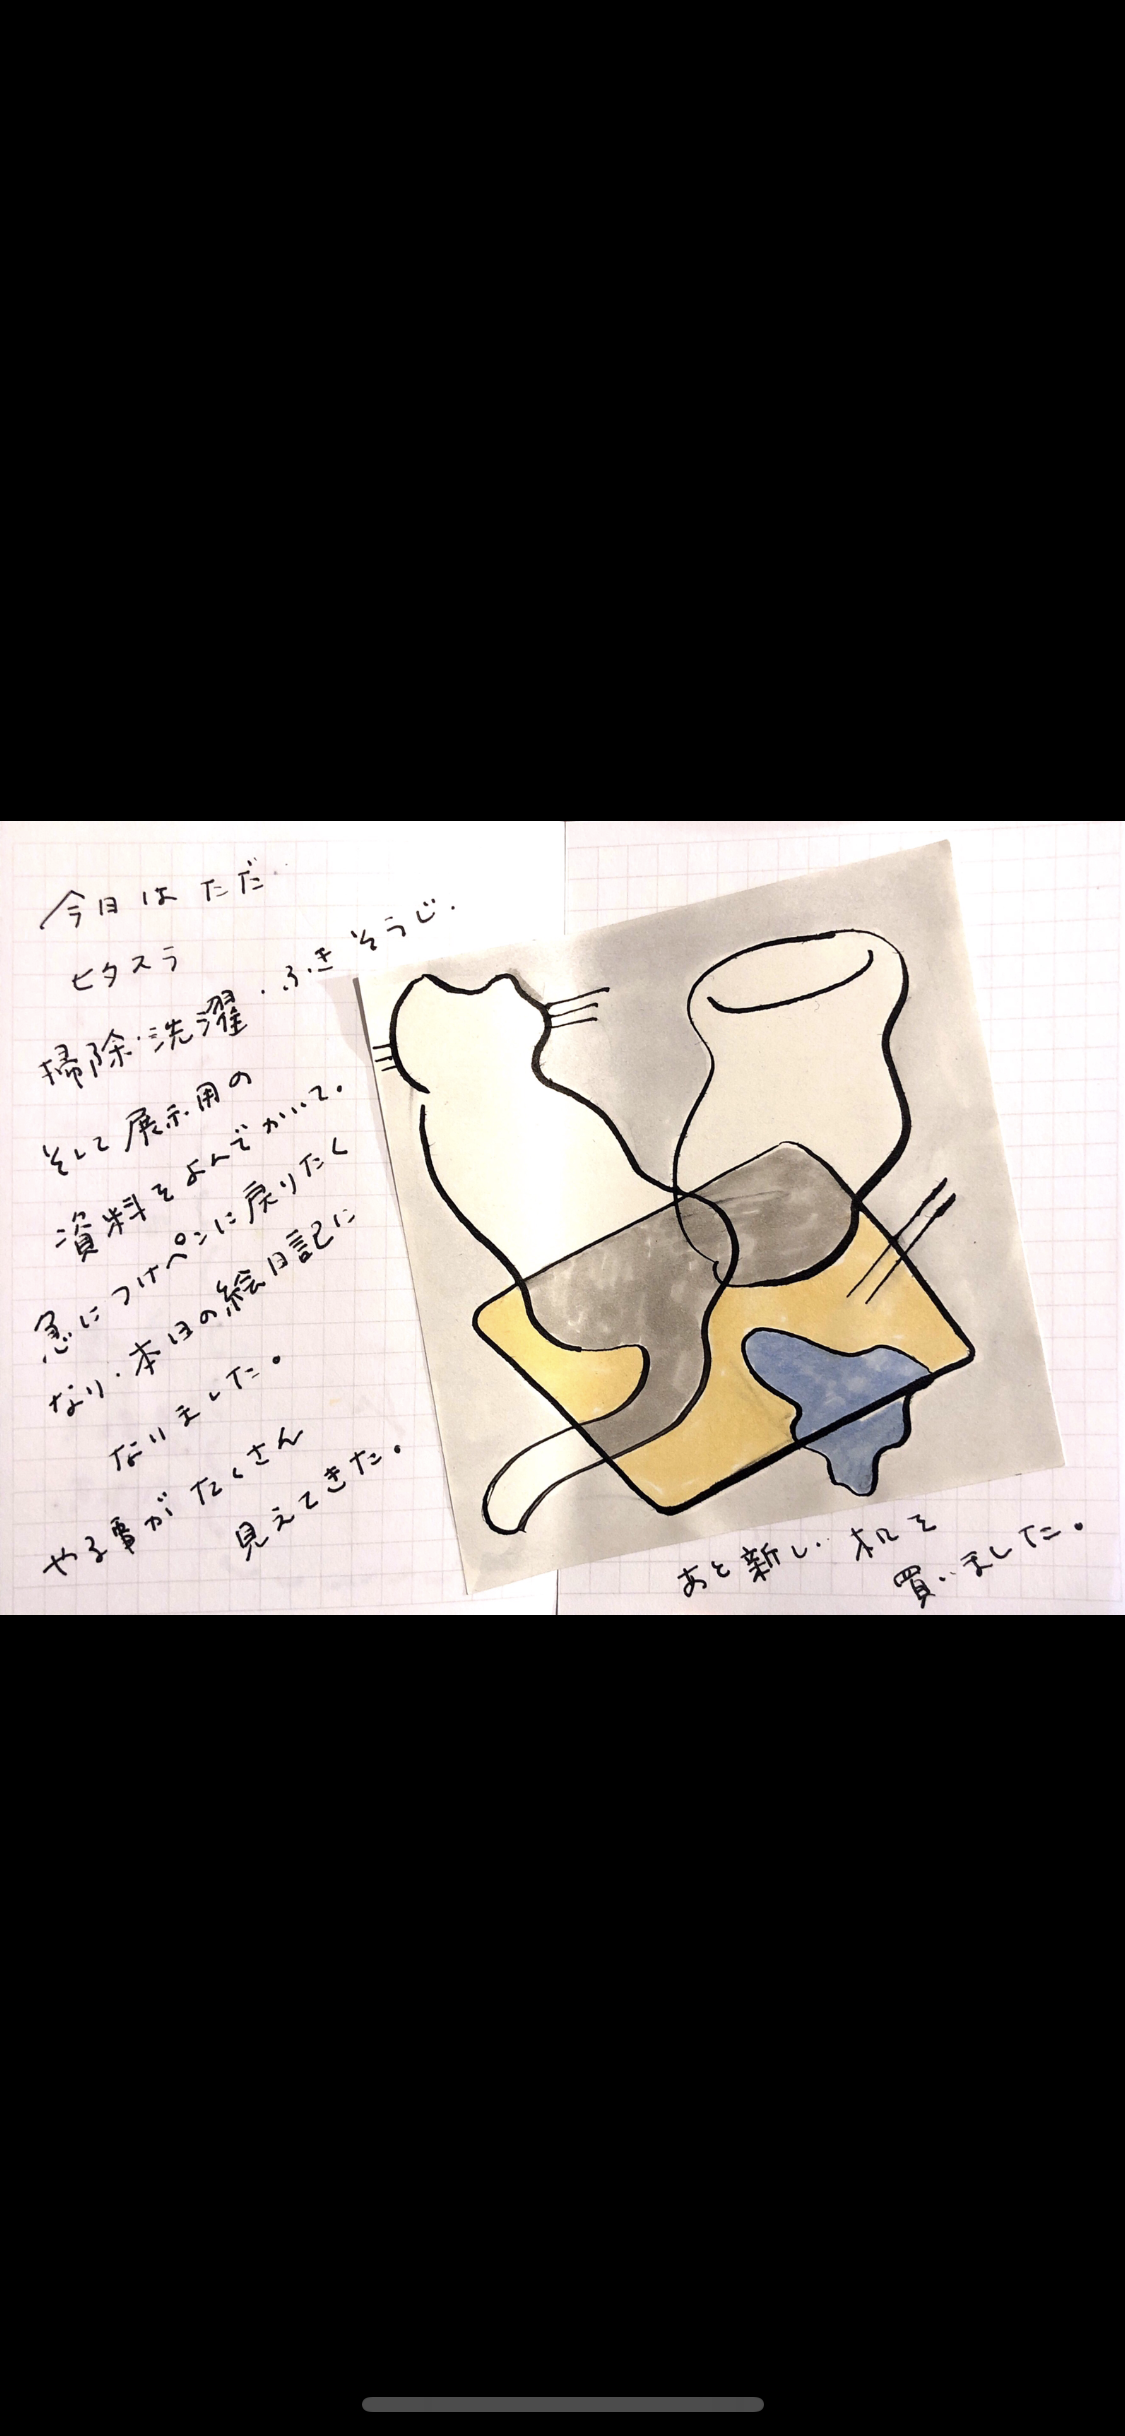 今日はただ
ヒタスラ
掃除・洗濯・ふきそうじ.
そして展示用の
資料をよんでかいて。
急につけペンに戻りたく
なり・本日の絵日記に
なりました。
やる事がたくさん
見えてきた。
あと新しい机を
買いました。